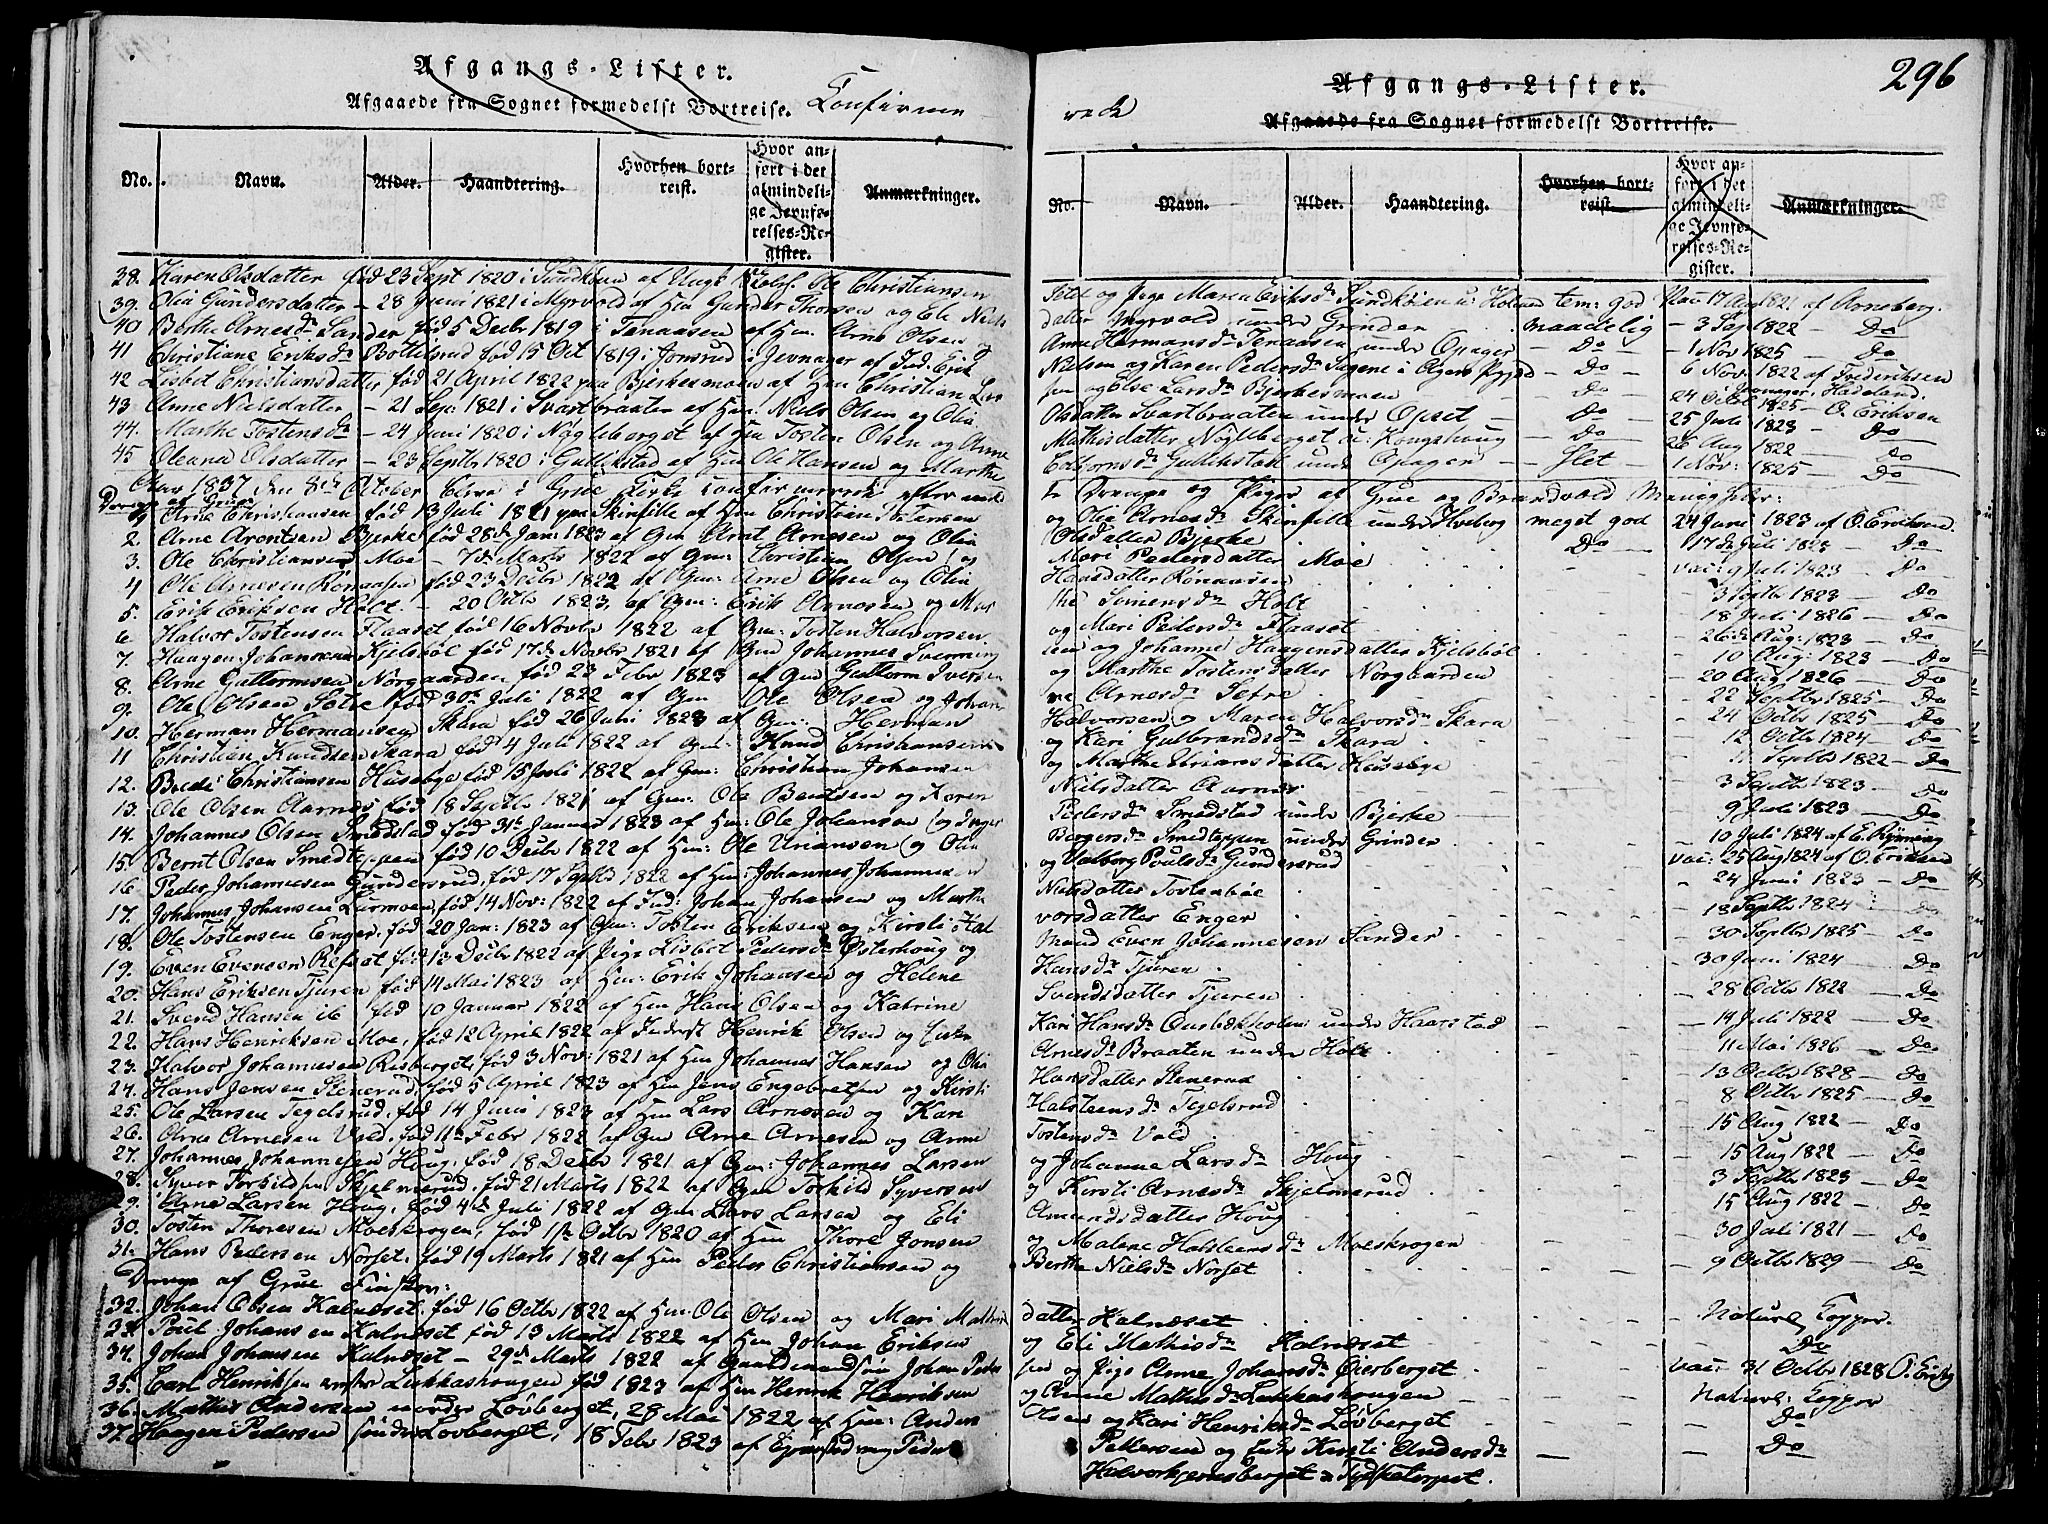 Afgangs-Lister.
Afgaaede fra Sognet formedelst Bortreise. Confirme
No. Navn. Alder. Haandtering. Hvorhen bortreist. Hvor anført i det almindelige Jevnførelses-Register. Anmærkninger.
38. Karen Olsdatter fød 23 Sept 1820 i Sundkøen af Ole Christiansen
39. Olia Gundersdatter - 28 Juni 1821 i Myrvold af Hm Gunder Thorsen og Eli Niels
40 Berthe Arnesdr Sander fød 5 Decbr 1819 i Tenaasen af Hm: Arne Olsen og
41 Christiane Eriksdr Bottilsrud fød 15 Oct 1819 i Jonsrud i Jevnager af Ind: Erik
42 Lisbet Christiansdatter fød 21 April 1822 paa Bjerkesmoen af Hm Christian Lar
43 Anne Nielsdatter - 21 Sep: 1821 i Svartbraaten af Hm. Niels Olsen og Olia
44. Marthe Tostensdr - 24 Juni 1820 i Nøgleberget af Hm Tosten Olsen og Anne
45 Oleana Olsdatter - 23 Septbr 1820 i Gullikstad af Hm Ole Hansen og Marthe
Aar 1837 den 8de October blev i Grue Kirke confirmerede efter
Drenge af Grue
1 Arne Christiansen fød 13 Juli 1821 paa Skinfille af Hm Christian Tostensen
2. Arne Arontsen Bjerke fød 28de Jan: 1823 af Gm Arnt Arnesen og Olia
3. Ole Christiansen Moe - 7de Marts 1822 af Gm: Christian Olsen og
4 Ole Arnesen Rønaasen fød 23 Decbr 1822 af Gm: Arne Olsen og Olia
5. Erik Eriksen Holt - 20 Octbr 1823, af Gm: Erik Arnesen og Mar
6 Halvor Tostensen Flaaset fød 16 Novbr 1822 af Gm: Tosten Halvorsen
7. Haagen Johannesen Kjelsbøl fød 17de Novbr 1821 af Gm Johannes Svenning
8. Arne Guttormsen Norgaarden fød 23 Febr 1823 af Gm Guttorm Iversen
9. Ole Olsen Sætre fød 30te Juli 1822 af Gm Ole Olsen og Johan
10. Herman Hermansen Skara fød 26 Juni 1823 af Gm: Herman
11 Christian Knudsen Skara fød 4 Juli 1822 af Gm: Knud Christiansen
12. Brede Christiansen Huseby fød 15 Juli 1822 af Gm: Christian Johansen
13. Ole Olsen Aarnes fød 18 Septbr 1821 af Gm: Ole Bentsen og Karen
14. Johannes Olsen Smedstad fød 31te Januar 1823 af Hm: Ole Johansen og Inger
15. Bernt Olsen Smedteppen fød 10 Decbr 1822 af Hm: Ole Uriansen og Olia
16. Peder Johannesen Gundersrud, fød 17 Septbr 1822 af Hm: Johannes Johannesen
17. Johannes Johansen Lurmoen, fød 14 Nov: 1822 af Ind: Johan Johansen og Marthe
18. Ole Tostensen Enger, fød 20 Jan: 1823 af Gm: Tosten Eriksen og Kirsti Hal
19. Even Evensen Refset fød 13 Decbr 1822 af Pige Lisbet Pedersdr Østerhoug og
20. Hans Eriksen Tjuren fød 14 Mai 1823 af Hm: Erik Johansen og Helene
21. Svend Hansen ib fød 10 Januar 1822 af Hm Hans Olsen og Katrine
22. Hans Henriksen Moe, fød 12 April 1822 af Inderst Henrik Olsen og
23. Halvor Johannesen Risberget, fød 3 Nov: 1821 af Hm Johannes Hansen og Olia
24. Hans Jensen Stenerud, fød 5 April 1823 af Hm Jens Engebretsen og Kirsti
25. Ole Larsen Tegelsrud, fød 14 Juni 1823 af Hm Lars Arnesen og Kari
26. Arne Arnesen Vald, fød 11te Febr 1822 af Gm Arne Arnesen og Anne
27. Johannes Johannesen Houg, fød 18 Decbr 1821 af Gm: Johannes Larsen
28. Syver Torkildsen Skjelmerud, fød 21 Marts 1822 af Gm Torkild Syversen
29. Arne Larsen Houg, fød 4de Juli 1822 af Gm Lars Larsen og Eli
30. Tosten Thoresen Moeskrogen, fød 1ste Octbr 1820 af Hm Thore Jonsen
31. Hans Pedersen Norset, fød 19 Marts 1821 af Hm Peder Christiansen og
Drenge af Grue Finskov:
32. Johan Olsen Kalnæset, fød 16 Octbr 1822 af Hm: Ole Olsen og Mari Mathis
33. Poul Johansen Kalnæset fød 13 Marts 1822 af Hm Johan Eriksen
34. Johan Johansen Kalnæset - 29de Marts 1822 af Gaardmandssøn Johan Peder
35. Carl Henriksen Lukkashougen fød 1823 af Hm Henrik Henriksen
36. Mathis Andersen nordre Løvberget, 28 Mai 1822 af Hm: Anders
37. Haagen Pedersen søndre Løvberget, 18 Febr 1823 af Peder
296
Afgangs-Lister.
rede
Afgaaede fra Sognet formedelst Bortreise.
No. Navn. Alder. Haandtering. Hvorhen bortreist. Hvor anført i det almindelige Jevnførelses-Register. Anmærkninger.
Pige Maren Eriksdr Sundkøien tem: god Vac: 17 Aug 1821 af Arneberg.
datter Myrvold under Grinder maadelig - 3 Sep 1822 - Do
Anne Hermansdr Tenaasen under Opager - Do - 1 Nov 1825 - Do
Nielsen og Karen Pedersdr Sagene i Agers Prgjd - Do - 6 Nov: 1822 af Frederiksen Jevnager, Hadeland.
sen og Else Larsdr Bjerkesmoen - Do 24 Octbr 1825 - O. Eriksen
Olsdatter Svartbraaten under Opset - Do - 25 Juli 1823 - Do
Mathisdatter Nøgleberget u: Kongshoug - Do - 26 Aug 1822 - Do
Gullikstad und Opager - Slet - 1 Nov: 1825 Do
Drenge og Piger af Grue og Brandvold Menigheder:
og Olia Arnesdr Skinfille under Hveberg meget god 24 Juni 1823 af O. Eriksen
Olsdatter Bjerke Do - 17de Juli 1823 - Do
Mari Pedersdatter Moe vac: 9 Juli 1823 - Do
Hansdatter Rønaasen - 3 Septbr 1823 - Do
the Simensdr Holt - 18 Juli 1826 - Do
og Mari Pedersdr Flaaset - 26de Aug: 1823 - Do
sen og Johanne Haagensdatter Kjelsbøl - 10 Aug: 1823 - Do
og Marthe Tostensdatter Norgaarden - 20 Aug 1826 - Do
ne Arnesdr Setre - 22 Septbr 1825 - Do
Halvorsen og Maren Halvorsdr Skara - 24 Octbr 1825 - Do
og Kari Gulbrandsdr Skara - 12 Octbr 1824 - Do
og Marthe Uriansdatter Husebye - 11 Septbr 1822 - Do
Nielsdatter Aarnes - 3 Septbr 1823 - Do
Pedersdr Smedstad under Bjerke - 9 Juli 1823 - Do
Bergersdr Smedteppen under Grinder - 10 Juli 1824 af E. Rynning
og Valborg Poulsdr Gundersrud vac: 25 Aug 1824 af O. Eriksen
Nielsdatter Tostenbøl - 24 Juni 1823 - Do
vorsdatter Enger - 18 Septbr 1824 - Do
Mand Even Johannesen Sander - 30 Septbr 1825 - Do
Hansdr Tjuren - 30 Juni 1824 - Do
Svendsdatter Tjuren - 28 Octbr 1822 - Do
Kari Hansdr under Haarstad - 14 Juli 1822 - Do
Arnesdr Braaten under Holt - 11 Mai 1826 - Do
Hansdatter Stenerud - 13 Octbr 1828 - Do
Halsteensdr Tegelsrud - 8 Octbr 1825 - Do
Tostensdr Vald - 15 Aug 1822 - Do
og Johanne Larsdr Houg - 15 Aug 1822 - Do
og Kirsti Arnesdr Skjelmerud - 3 Septbr 1823 - Do
Amundsdatter Houg - 15 Aug 1822 - Do
og Malene Halsteensdr Moeskrogen - 30 Juli 1821 - Do
Berthe Nielsdr Norset - 9 Octbr 1829 - Do
datter Kalnæset - Naturl. Kopper.
og Eli Mathisdr Kalnæset - Do
sen og Pige Anne Johansdr Øierberget vac: 31 Octbr 1828 O. Eriks
og Anne Mathisdr Lukkashougen Naturl. Kopper
Olsen og Kari Henriksdr Løvberget - Do
Pedersen og Kirsti Andersdr - Do
Halvorkjernsberget